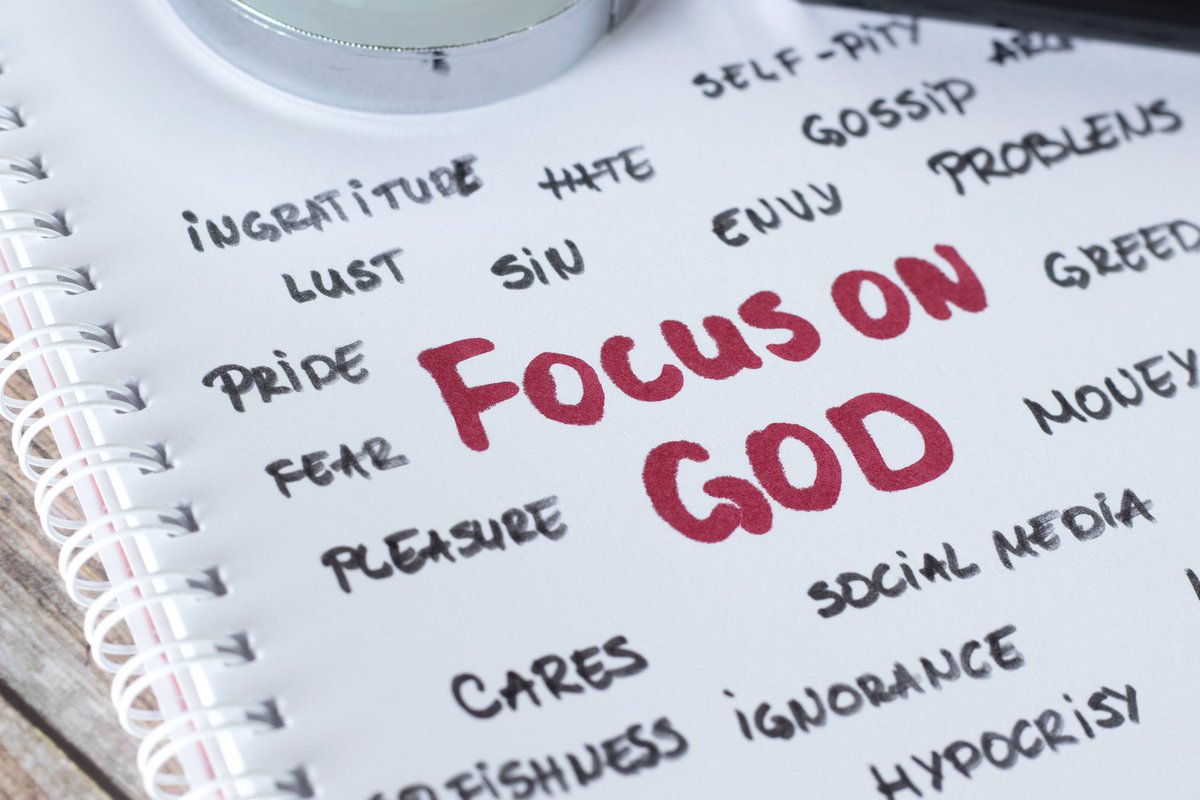 SELF-PITY
GOSSiP
PROBLENS
iNGRATiTUDE HATE
LUST SiN ENVY
GREED
PRiDE
FOCUS ON
GOD
MONEY
FEAR
PLEASURE
SOCiAL MEDiA
CARES
iGNORANCE
LFiSHNESS
HYPOCRiSY